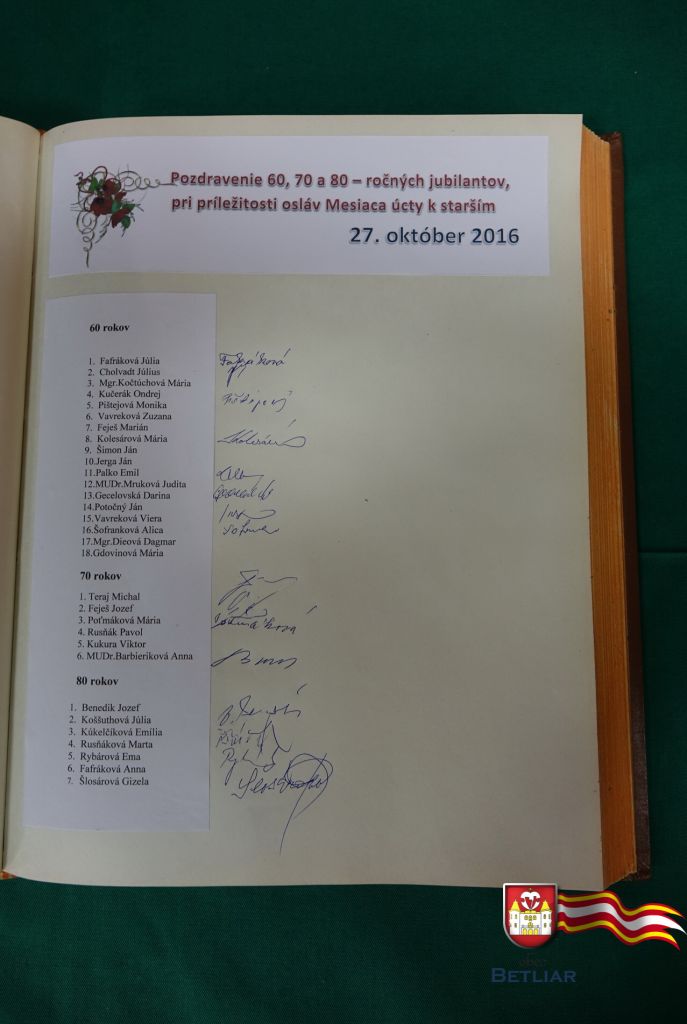 Pozdravenie 60, 70 a 80 – ročných jubilantov,
pri príležitosti osláv Mesiaca úcty k starším
27. október 2016
60 rokov
1. Fafráková Júlia
2. Cholvadt Július
3. Mgr.Kočtúchová Mária
4. Kučerák Ondrej
5. Pištejová Monika
6. Vavreková Zuzana
7. Feješ Marián
8. Kolesárová Mária
9. Šimon Ján
10.Jerga Ján
11.Palko Emil
12.MUDr.Mruková Judita
13.Gecelovská Darina
14.Potočný Ján
15.Vavreková Viera
16.Šofranková Alica
17.Mgr.Dieová Dagmar
18.Gdovinová Mária
70 rokov
1. Teraj Michal
2. Feješ Jozef
3. Poťmáková Mária
4. Rusňák Pavol
5. Kukura Viktor
6. MUDr.Barbieriková Anna
80 rokov
1. Benedik Jozef
2. Koššuthová Júlia
3. Kúkelčíková Emília
4. Rusňáková Marta
5. Rybárová Ema
6. Fafráková Anna
7. Šlosárová Gizela
Fafráková
obec
BETLIAR